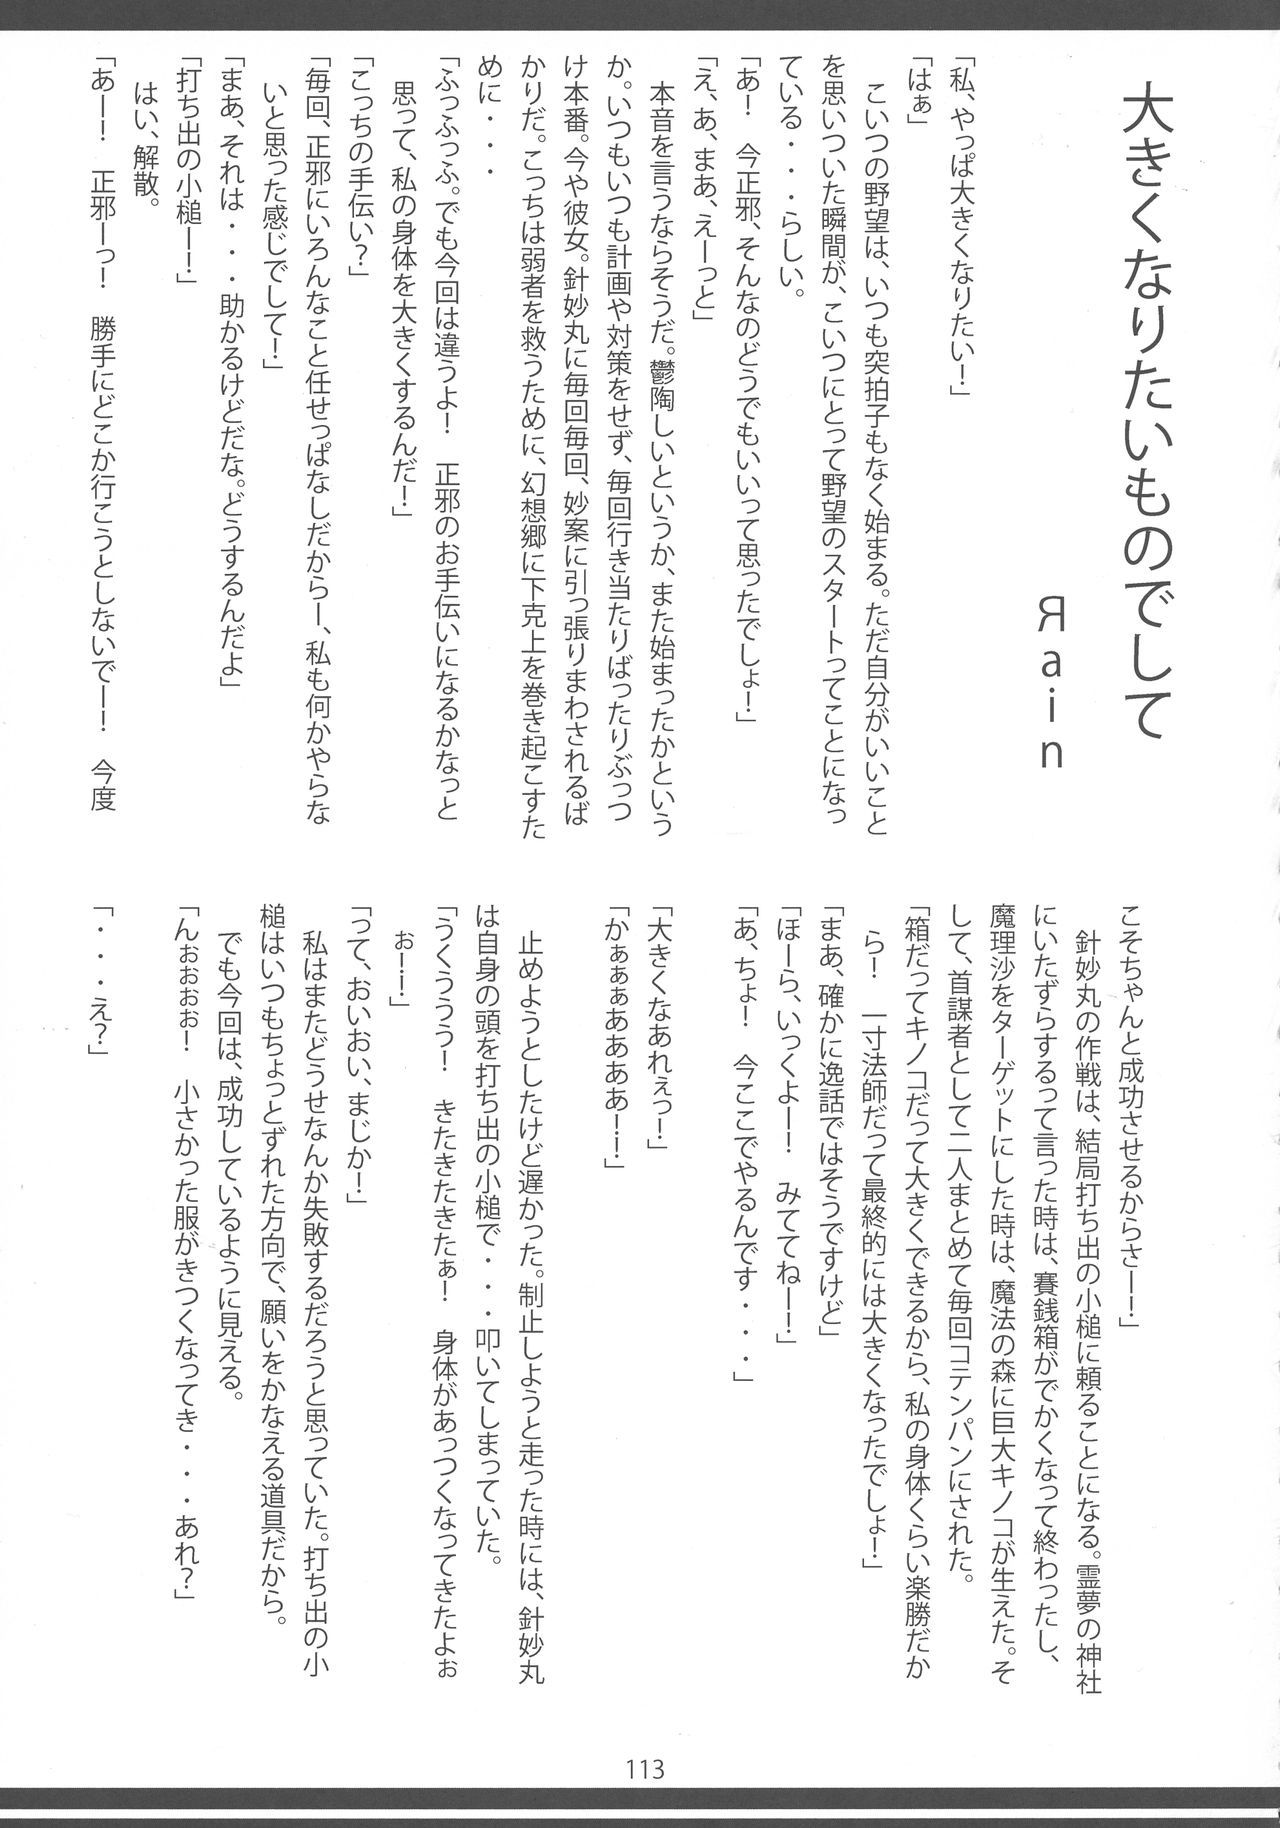 大きくなりたいものでして
Яain
「私、やっぱ大きくなりたい！」
「はぁ」
　こいつの野望は、いつも突拍子もなく始まる。ただ自分がいいこと
を思いついた瞬間が、こいつにとって野望のスタートってことになっ
ている・・・らしい。
「あ！　今正邪、そんなのどうでもいいって思ったでしょ！」
「え、あ、まあ、えーっと」
　本音を言うならそうだ。鬱陶しいというか、また始まったかという
か。いつもいつも計画や対策をせず、毎回行き当たりばったりぶっつ
け本番。今や彼女。針妙丸に毎回毎回、妙案に引っ張りまわされるば
かりだ。こっちは弱者を救うために、幻想郷に下克上を巻き起こすた
めに・・・
「ふっふっふ。でも今回は違うよ！　正邪のお手伝いになるかなっと
　思って、私の身体を大きくするんだ！」
「こっちの手伝い？」
「毎回、正邪にいろんなこと任せっぱなしだからー、私も何かやらな
　いと思った感じでして！」
「まあ、それは・・・助かるけどだな。どうするんだよ」
「打ち出の小槌ー！」
　はい、解散。
「あー！　正邪ーっ！　勝手にどこか行こうとしないでー！　今度
こそちゃんと成功させるからさー！」
　針妙丸の作戦は、結局打ち出の小槌に頼ることになる。霊夢の神社
にいたずらするって言った時は、賽銭箱がでかくなって終わったし、
魔理沙をターゲットにした時は、魔法の森に巨大キノコが生えた。そ
して、首謀者として二人まとめて毎回コテンパンにされた。
「箱だってキノコだって大きくできるから、私の身体くらい楽勝だか
　ら！　一寸法師だって最終的には大きくなったでしょ！」
「まあ、確かに逸話ではそうですけど」
「ほーら、いっくよー！　みててねー！」
「あ、ちょ！　今ここでやるんです・・・」
「大きくなあれぇっ！」
「かぁぁぁああああー！」
　止めようとしたけど遅かった。制止しようと走った時には、針妙丸
は自身の頭を打ち出の小槌で・・・叩いてしまっていた。
「うくううう！　きたきたきたぁ！　身体があっつくなってきたよぉ
　ぉー！」
「って、おいおい、まじか！」
　私はまたどうせなんか失敗するだろうと思っていた。打ち出の小
槌はいつもちょっとずれた方向で、願いをかなえる道具だから。
　でも今回は、成功しているように見える。
「んぉぉぉぉ！　小さかった服がきつくなってき・・・あれ？」
「・・・え？」
113